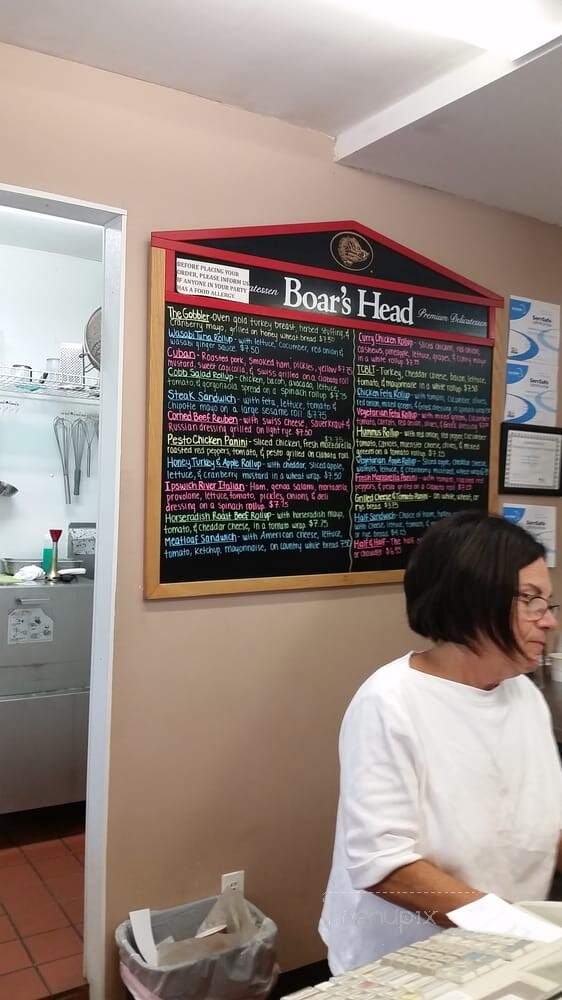 BEFORE PLACING YOUR
ORDER, PLEASE INFORM US
IF ANYONE IN YOUR PARTY
HAS A FOOD ALLERGY.
Boar's Head
Premium Delicatessen
The Gobbler-oven gold turkey breast, herbed stuffing &
cranberry mayo, grilled on honey wheat bread $7.50
Wasabi Tuna Rollup- with lettuce, cucumber, red onion &
wasabi ginger sauce $7.50
Cuban- Roasted pork, smoked ham, pickles, yellow
mustard, sweet capicolla, & swiss grilled on a ciabatta roll
Cobb Salad Rollup- chicken, bacon, avocado, lettuce,
tomato, & gorgonzola spread on a spinach rollup $7.75
Steak Sandwich- with feta, lettuce, tomato &
Chipotle mayo on a large sesame roll $7.75
Corned Beef Reuben- with swiss cheese, sauerkraut &
Russian dressing grilled on light rye $7.50
Pesto Chicken Panini- sliced chicken, fresh mozzarella,
roasted red peppers, tomato, & pesto grilled on ciabatta roll
Honey Turkey & Apple Rollup- with cheddar, sliced apple,
lettuce, & cranberry mustard in a wheat wrap $7.50
Ipswich River Italian- Ham, genoa salami, mortadella,
provolone, lettuce, tomato, pickles, onions, & deli
dressing on a spinach rollup $7.25
Horseradish Roast Beef Rollup- with horseradish mayo,
tomato, & cheddar cheese, in a tomato wrap $7.75
Meatloaf Sandwich- with American cheese, lettuce,
tomato, ketchup, mayonnaise, on country white bread 7.50
Curry Chicken Rollup- sliced chicken, red onion,
cashews, pineapple, lettuce, grapes, & curry mayo
in a wheat wrap $7.75
TCBLT- Turkey, cheddar cheese, bacon, lettuce,
tomato, & mayonnaise in a white rollup $7.50
Chicken Feta Rollup- with tomatoes, cucumber, olives,
Vegetarian Feta Rollup- with mixed greens, cucumber,
tomato, carrots, red onion, olives, & Greek dressing
Hummus Rollup- with red onion, red pepper, cucumber
tomato, carrots, muenster cheese, olives, & mixed
greens on a tomato rollup
Vegetarian Apple Rollup- Sliced apple, cheddar cheese,
Fresh Mozzarella Panini- with tomato, roasted red
peppers, & pesto grilled on a ciabatta roll
Grilled Cheese & Tomato Panini- on white, wheat, or
rye bread $3.75
Half Sandwich- Choice of ham, turkey,
with cheese, lettuce, tomato, &
or rye bread
Half & Half- The half
or chowder $6.95
ServSafe
ServSafe
menupix